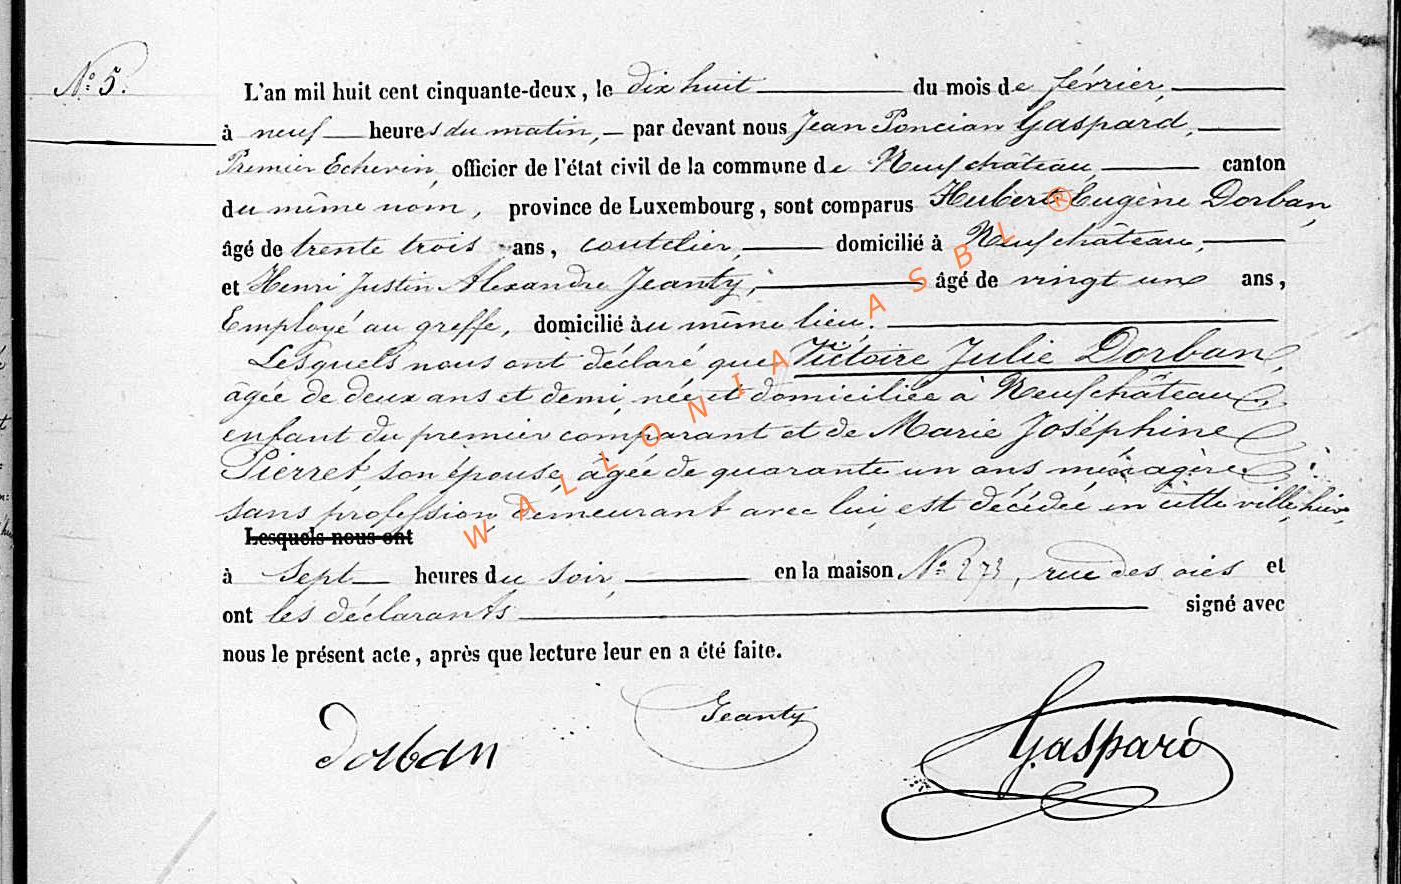 N° 5.
L'an mil huit cent cinquante-deux, le dix huit du mois de février,
à neuf heures du matin, par devant nous Jean Poncian Gaspard,
Premier Echevin, officier de l'état civil de la commune de Neufchâteau, canton
du même nom, province de Luxembourg, sont comparus Hubert Eugène Dorban,
âgé de trente trois ans, coutelier, domicilié à Neufchâteau,
et Henri Justin Alexandre Jeanty, âgé de vingt un ans,
Employé au greffe, domicilié au même lieu.
Lesquels nous ont déclaré que Victoire Julie Dorban,
âgée de deux ans et demi, née et domiciliée à Neufchâteau,
enfant du premier comparant et de Marie Joséphine
Pierret, son épouse, âgée de quarante un ans ménagère
sans profession, demeurant avec lui, est décédée en cette ville, hier,
Lesquels nous ont
à Sept heures du soir, en la maison N° 273, rue des oies et
ont les déclarants signé avec
nous le présent acte, après que lecture leur en a été faite.
Dorban Jeanty Gaspard
WALLONIA ASBL ®